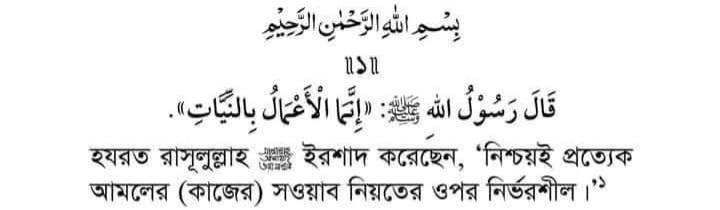 بِسْمِ اللهِ الرَّحْمٰنِ الرَّحِيْمِ
॥১॥
قَالَ رَسُوْلُ اللهِ ﷺ: «إِنَّمَا الْأَعْمَالُ بِالنِّيَّاتِ».
হযরত রাসূলুল্লাহ ইরশাদ করেছেন, ‘নিশ্চয়ই প্রত্যেক
আমলের (কাজের) সওয়াব নিয়তের ওপর নির্ভরশীল।’১